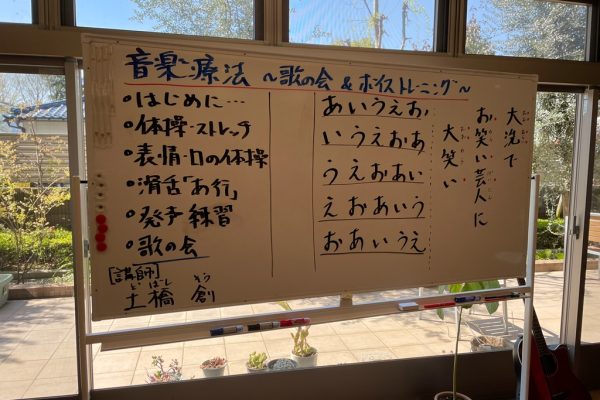 音楽療法 ～歌の会 & ボイストレーニング～
・はじめに…
・体操・ストレッチ
・表情・口の体操
・滑舌「あ行」
・発声練習
・歌の会
[講師]
どばし そう
土橋 創
あいうえお
いうえおあ
うえおあい
えおあいう
おあいうえ
大洗で
お笑い芸人に
大笑い